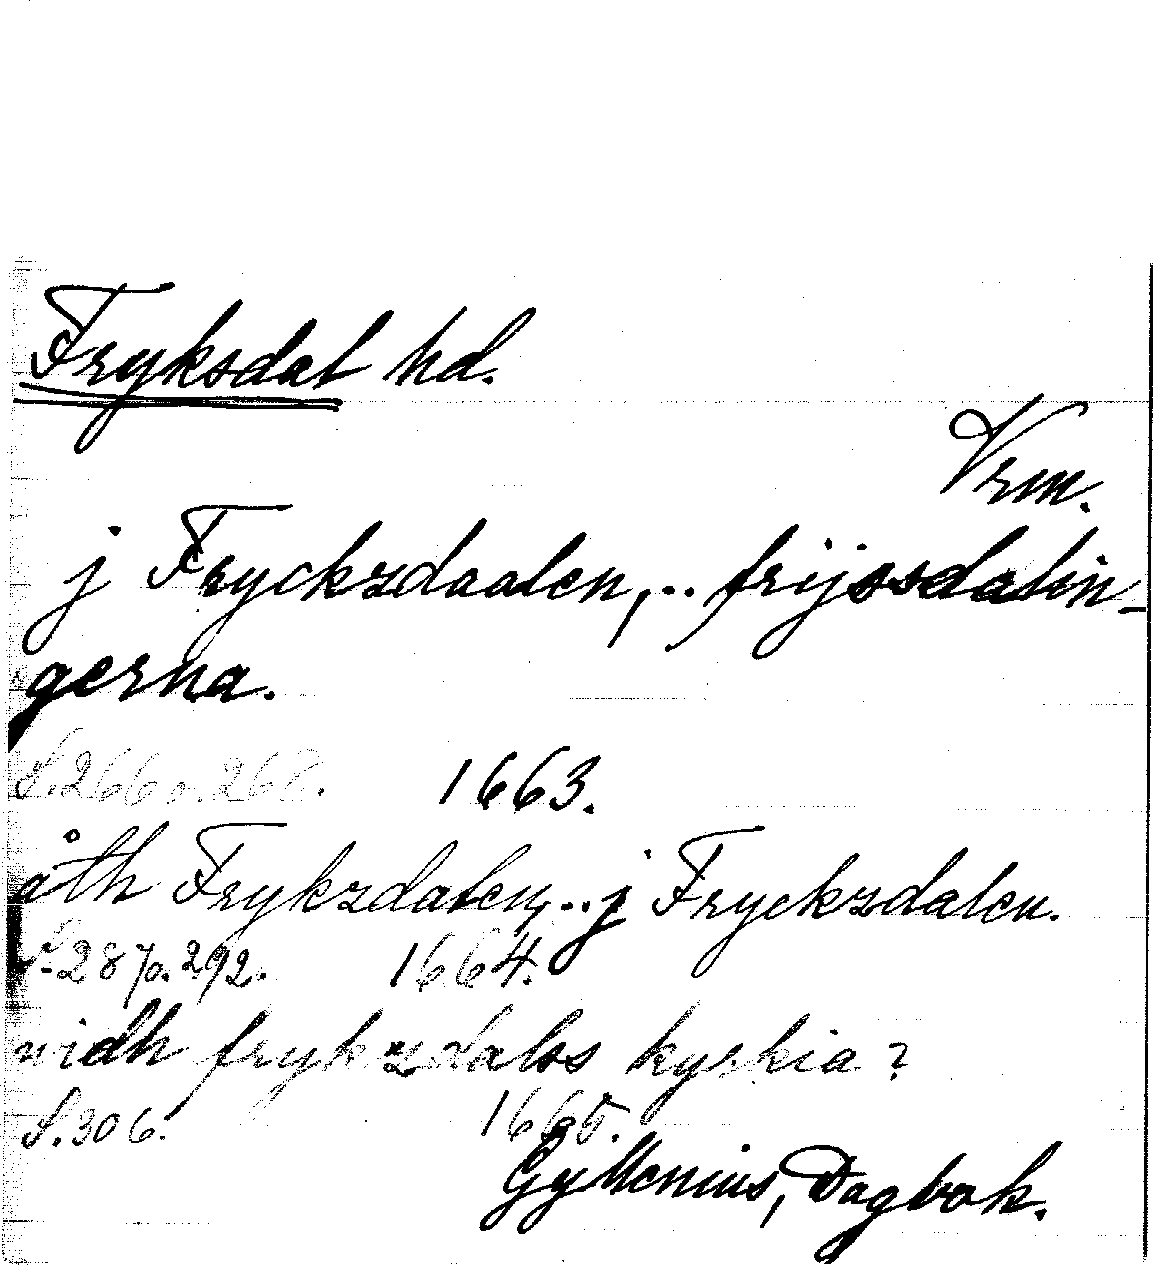 Fryksdal hd.
Vrm.
j Fryckzdaalen, .. frijssdalin-
gerna.
S. 266 o. 268. 1663.
åth Frykzdalen, .. j Fryckzdalen.
S. 287 o. 292. 1664.
widh frykzdalss kyrkia?
S. 306. 1665.
Gyllenius, Dagbok.